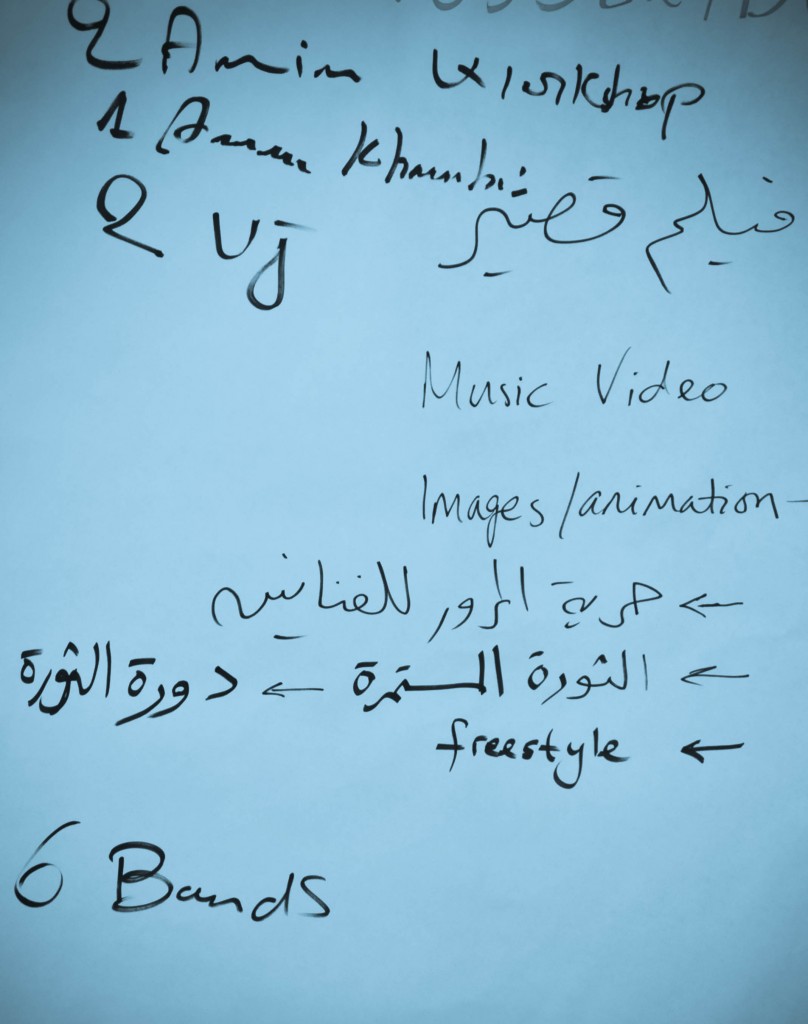 2 Amin workshop
1 Amin
2 Vj
فيلم قصير
Music Video
Images/animation -
← حرية المرور للفنانين
← الثورة المستمرة ← دورة الثورة
← freestyle
6 Bands